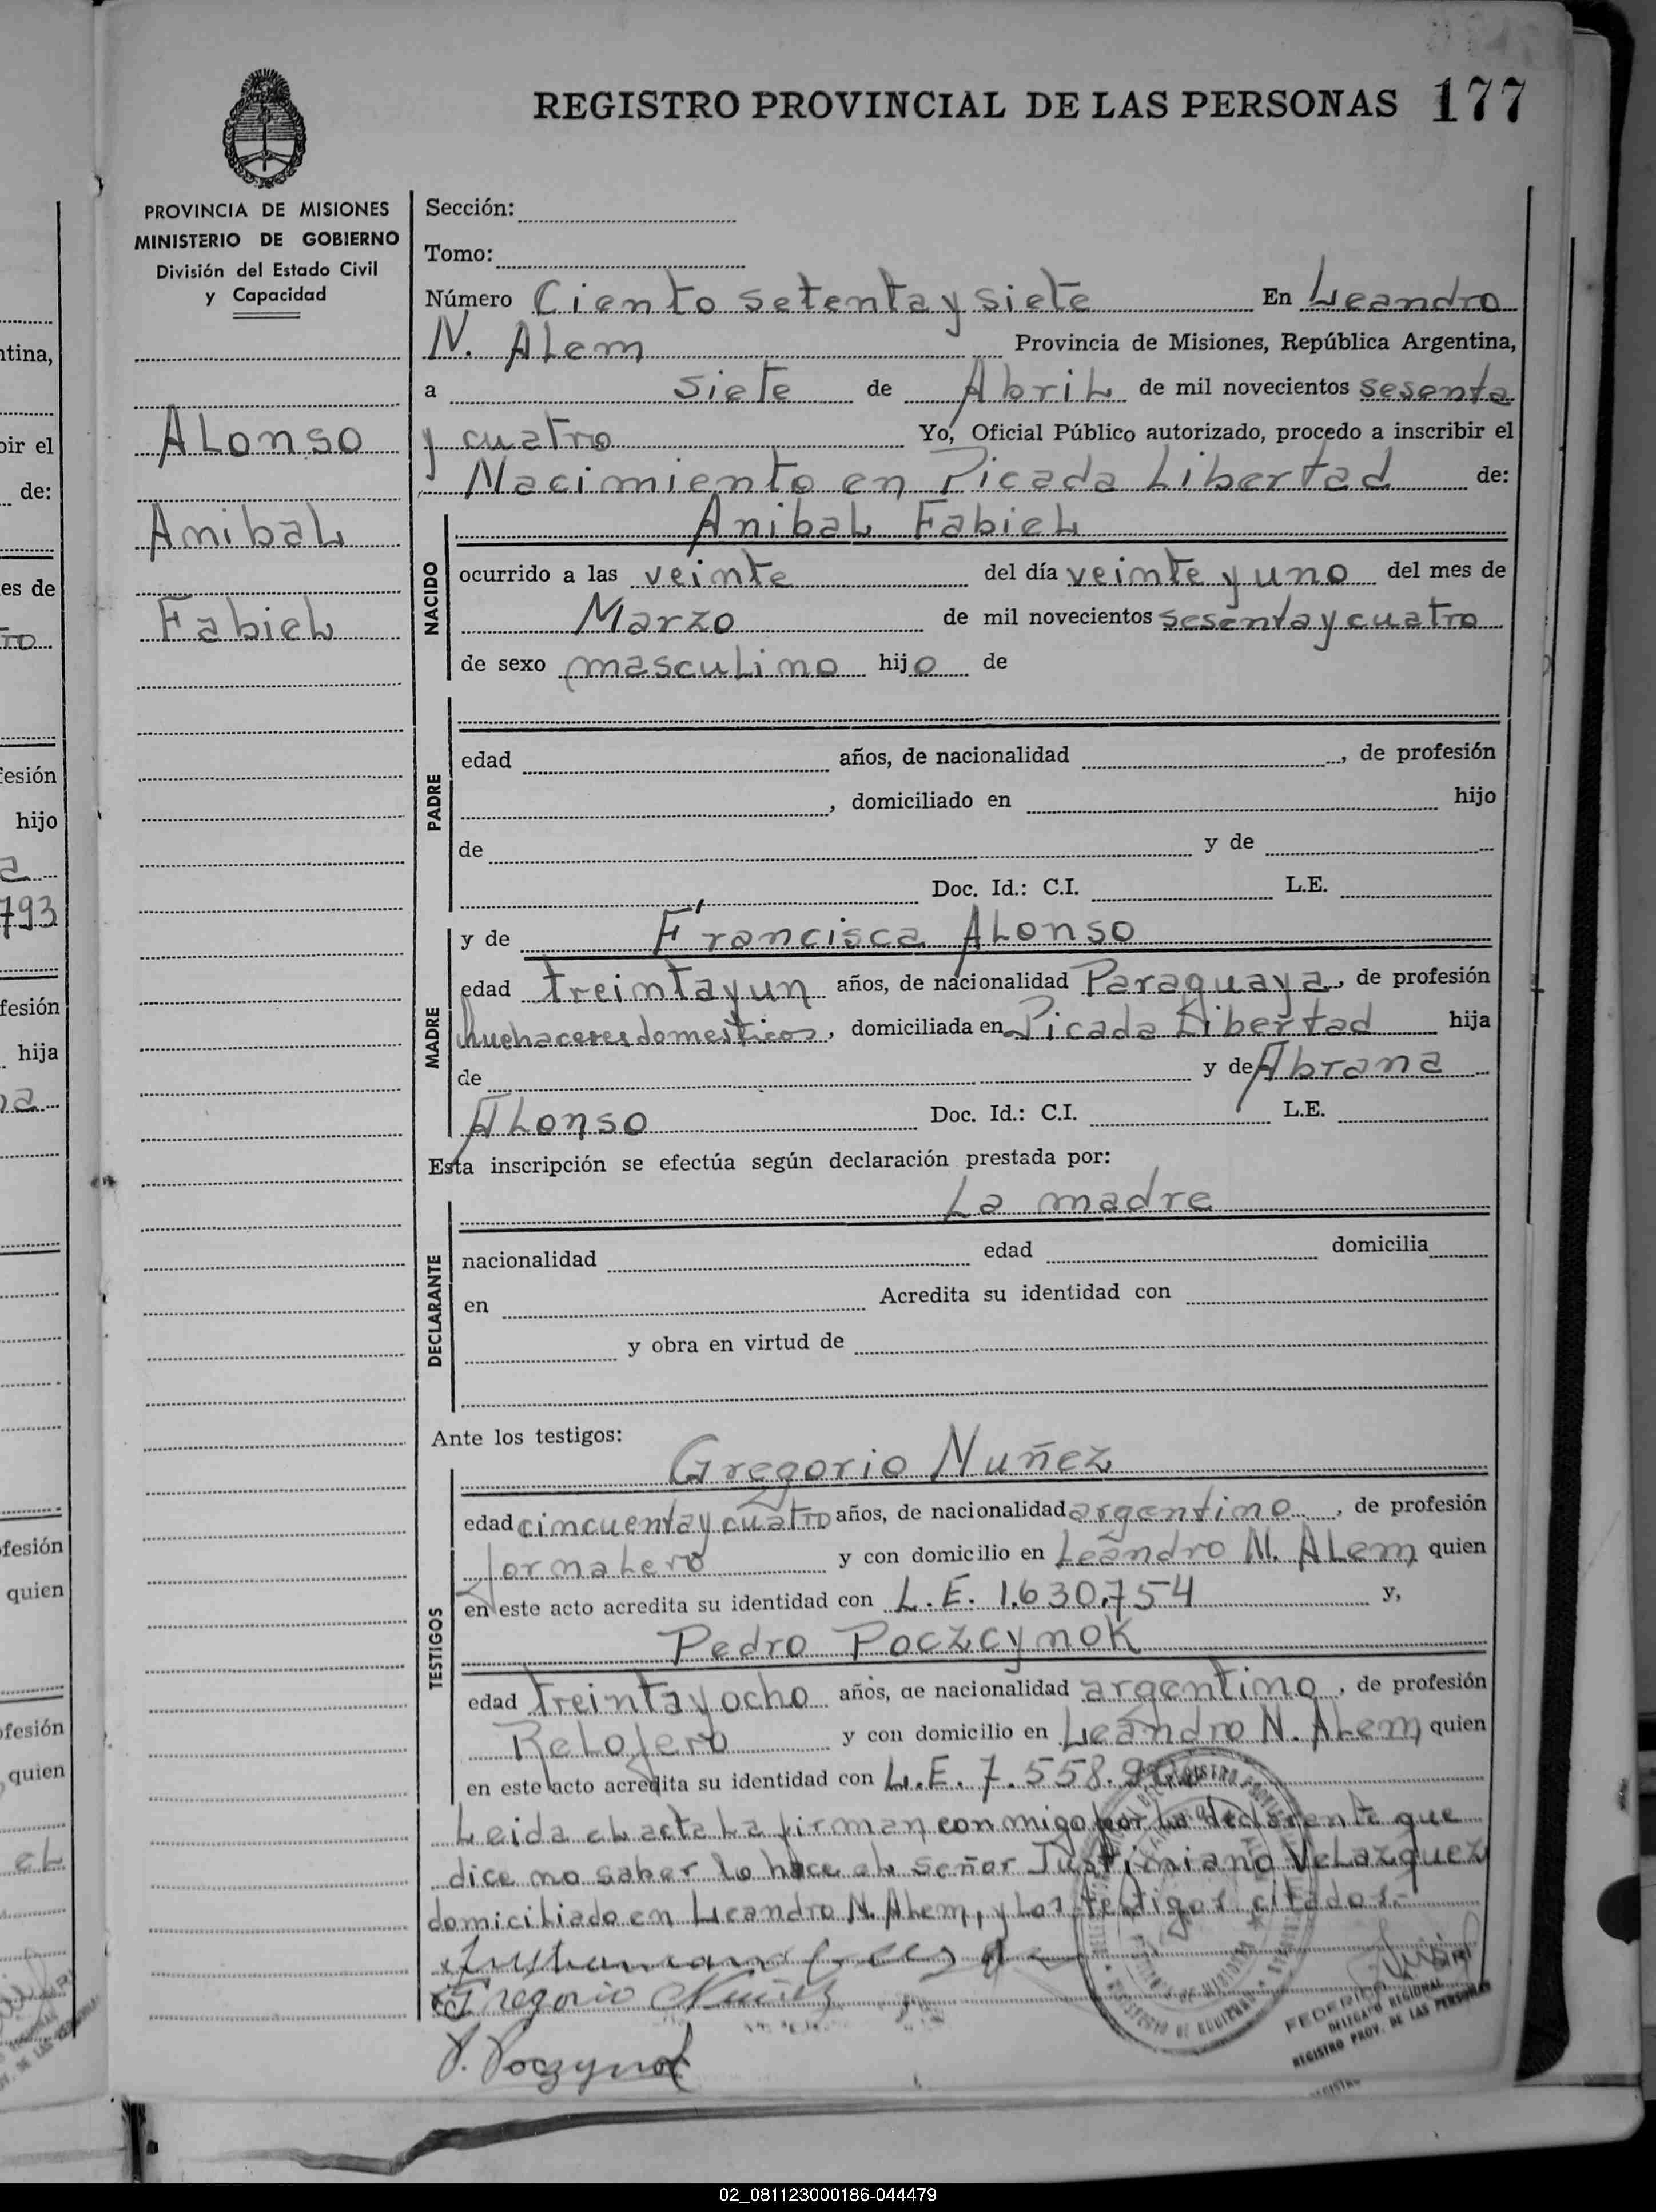 REGISTRO PROVINCIAL DE LAS PERSONAS 177
PROVINCIA DE MISIONES
MINISTERIO DE GOBIERNO
División del Estado Civil
y Capacidad
Alonso
Anibal
Fabiel
Sección:
Tomo:
Número Ciento setenta y siete En Leandro
N. Alem Provincia de Misiones, República Argentina,
a siete de Abril de mil novecientos sesenta
y cuatro Yo, Oficial Público autorizado, procedo a inscribir el
Nacimiento en Picada Libertad de:
Anibal Fabiel
NACIDO
ocurrido a las veinte del día veinte y uno del mes de
Marzo de mil novecientos sesenta y cuatro
de sexo masculino hijo de
PADRE
edad años, de nacionalidad , de profesión
, domiciliado en hijo
de y de
Doc. Id.: C.I. L.E.
y de Francisca Alonso
MADRE
edad treinta y un años, de nacionalidad Paraguaya, de profesión
domesticos, domiciliada en Picada Libertad hija
de y de Abrana
Alonso Doc. Id.: C.I. L.E.
Esta inscripción se efectúa según declaración prestada por:
La madre
DECLARANTE
nacionalidad edad domicilia
en Acredita su identidad con
y obra en virtud de
Ante los testigos:
Gregorio Nuñez
TESTIGOS
edad cincuenta y cuatro años, de nacionalidad argentino, de profesión
Jornalero y con domicilio en Leandro N. Alem quien
en este acto acredita su identidad con L.E. 1.630.754 y,
Pedro Poczcynok
edad treinta y ocho años, de nacionalidad argentino, de profesión
Relojero y con domicilio en Leandro N. Alem quien
en este acto acredita su identidad con L.E. 7.558.
Leida el acta la firman conmigo por la declarente que
dice no saber lo hace el señor Justiniano Velazquez
domiciliado en Leandro N. Alem, y los testigos citados.-
Gregorio Nuñez
P. Poczynok
DELEGADO REGIONAL
REGISTRO PROV. DE LAS PERSONAS
02_081123000186-044479